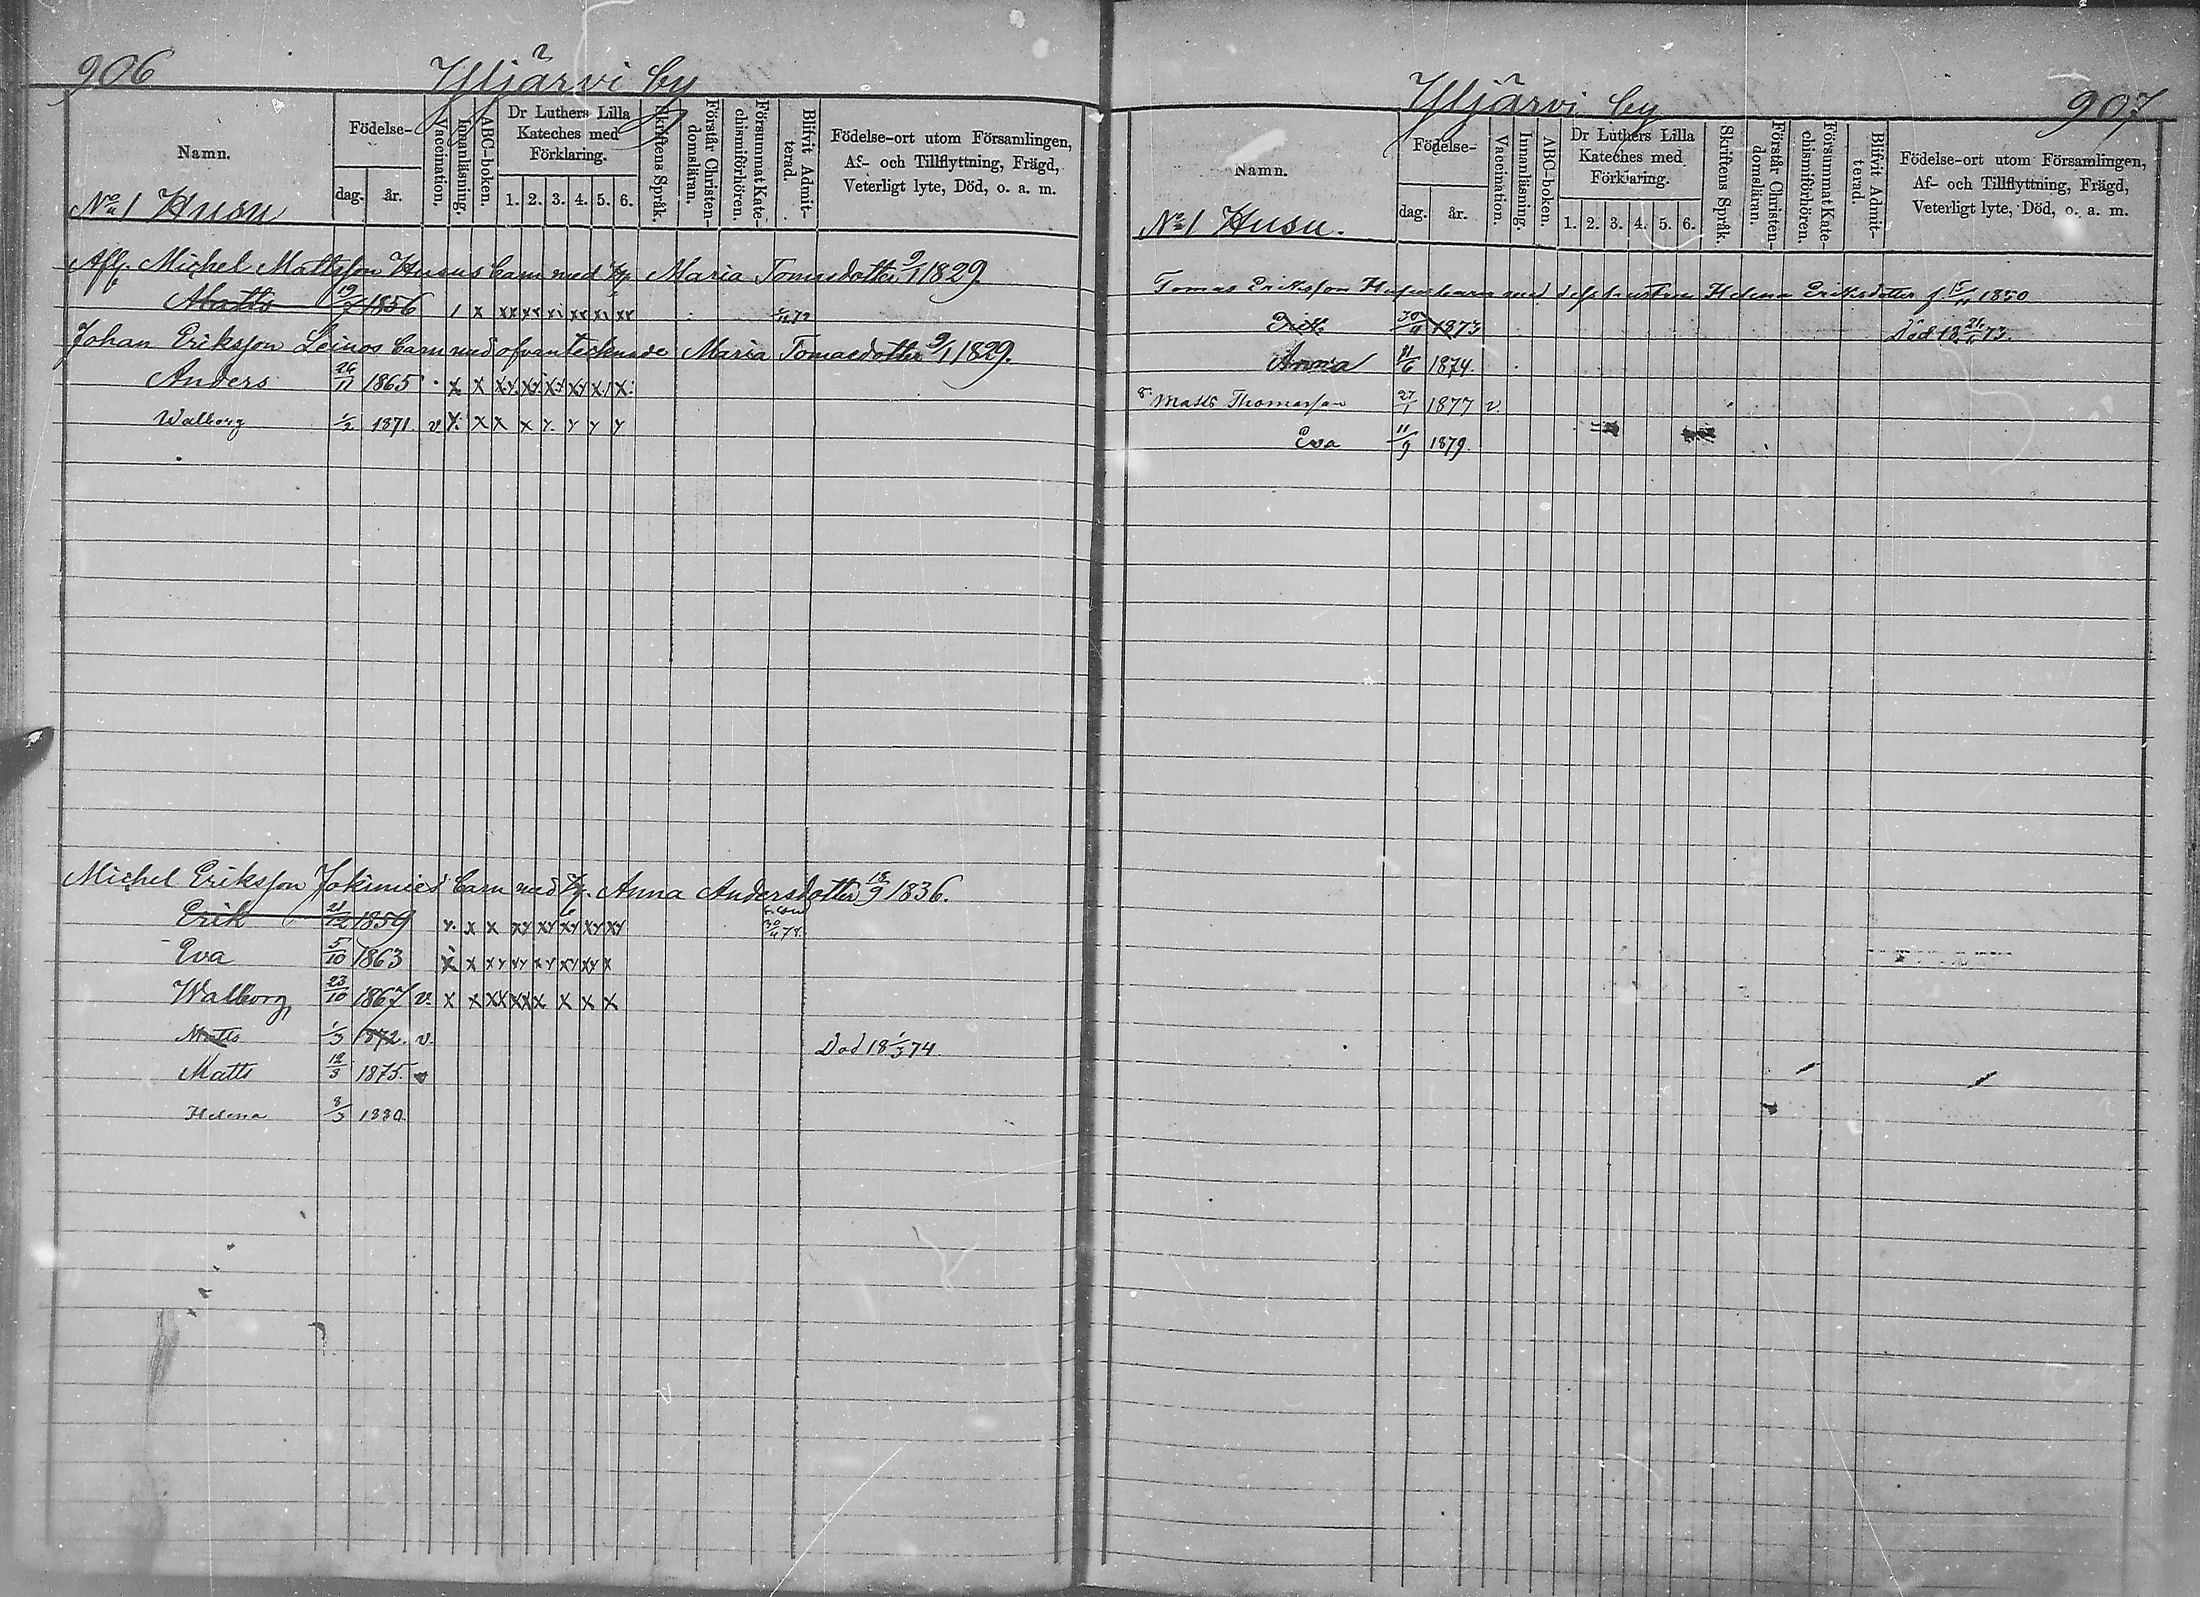 906
Yljärvi by
Namn.
Födelse-
dag.
år.
Vaccination.
Innanläsning.
ABC-boken.
Dr Luthers Lilla
Kateches med
Förklaring.
1. 2. 3. 4. 5. 6.
Skriftens Språk.
Förstår Christen-
domsläran.
Försummat Kate-
chismiförhören.
Blifvit Admit-
terad.
Födelse-ort utom Församlingen,
Af- och Tillflyttning, Frägd,
Veterligt lyte, Död, o. a. m.
No 1 Husu
Afl. Michel Mattsson Husus barn med Maria Tomasdotter 9/1 1829.
Matts 19/7 1856 1 x xx xx xx xx xx
Johan Eriksson Leinos barn med ofvantecknade Maria Tomasdotter 9/1 1829.
Anders 26/11 1865
Walborg 1/2 1871 v.
Michel Eriksson Jokimies barn med Anna Andersdotter 18/9 1836.
Erik 21/12 1859
Eva 5/10 1863
Walborg 23/10 1867 v.
Matts 1/3 1872 v. Död 18 1/3 74.
Matts 12/3 1875.
Helena 8/3 1880.
Yljärvi by
907
Namn.
Födelse-
dag.
år.
Vaccination.
Innanläsning.
ABC-boken.
Dr Luthers Lilla
Kateches med
Förklaring.
1. 2. 3. 4. 5. 6.
Skriftens Språk.
Förstår Christen-
domsläran.
Försummat Kate-
chismiförhören.
Blifvit Admit-
terad.
Födelse-ort utom Församlingen,
Af- och Tillflyttning, Frägd,
Veterligt lyte, Död, o. a. m.
No 1 Husu.
Tomas Eriksson Husus barn med dess hustru Helena Eriksdotter f. 15/11 1850
Erik 30/9 1873 Död 18 26/11 73.
Anna 21/6 1874.
Matts Thomasson 27/1 1877 v.
Eva 11/9 1879.